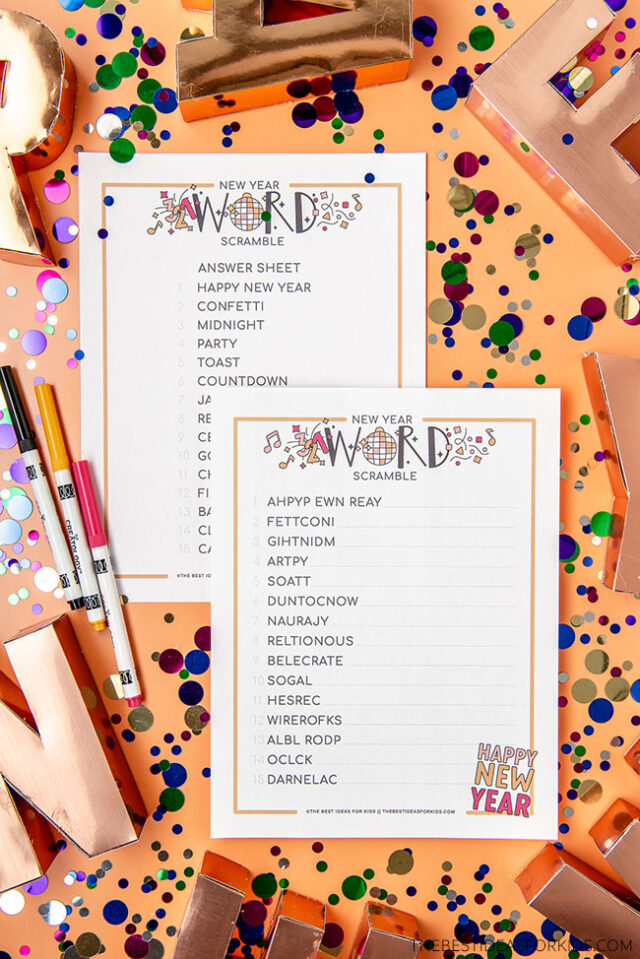 NEW YEAR
WORD
SCRAMBLE
ANSWER SHEET
1 HAPPY NEW YEAR
2 CONFETTI
3 MIDNIGHT
4 PARTY
5 TOAST
6 COUNTDOWN
7 JA
8 RE
9 CE
10 GO
11 CH
12 FI
13 BA
14 CL
15 CA
©THE BEST IDEAS
NEW YEAR
WORD
SCRAMBLE
1 AHPYP EWN REAY
2 FETTCONI
3 GIHTNIDM
4 ARTPY
5 SOATT
6 DUNTOCNOW
7 NAURAJY
8 RELTIONOUS
9 BELECRATE
10 SOGAL
11 HESREC
12 WIREROFKS
13 ALBL RODP
14 OCLCK
15 DARNELAC
HAPPY
NEW
YEAR
©THE BEST IDEAS FOR KIDS || THEBESTIDEASFORKIDS.COM
THEBESTIDEASFORKIDS.COM